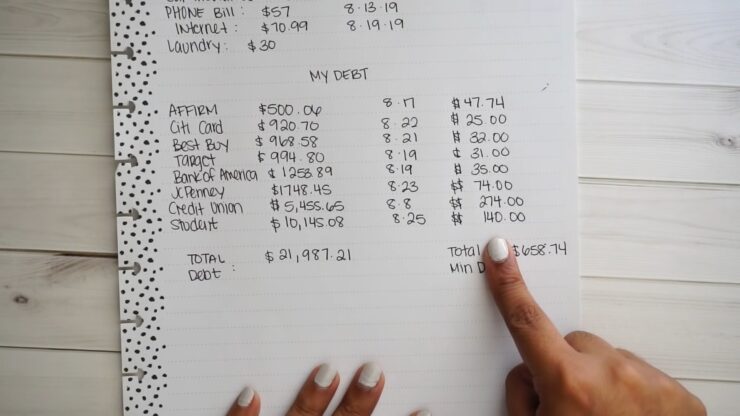 PHONE Bill: $57 8.13.19
Internet: $70.99 8.19.19
Laundry: $30
MY DEBT
AFFIRM $500.06 8.17 $47.74
Citi Card $920.70 8.22 $25.00
Best Buy $968.58 8.21 $32.00
TARGET $994.80 8.19 $31.00
Bank of America $1253.89 8.19 $35.00
JCPenney $1748.45 8.23 $74.00
Credit Union $5,455.65 8.8 $274.00
Student $10,145.08 8.25 $140.00
TOTAL Debt: $21,987.21
Total $658.74
Min D